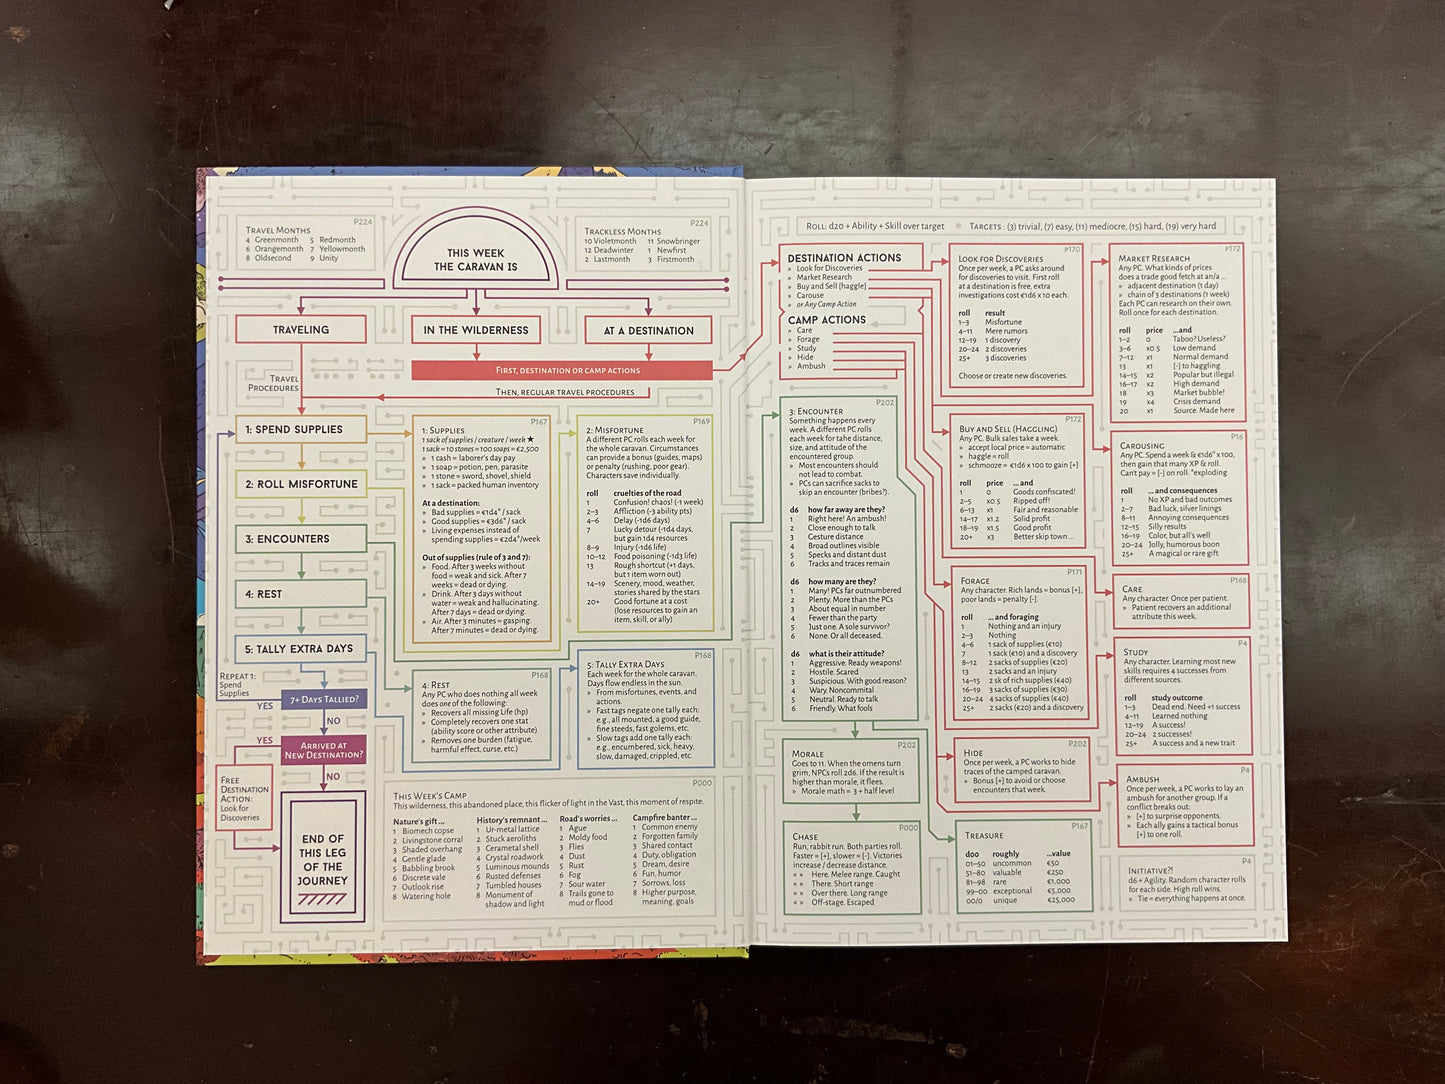 P224
Travel Months
4 Greenmonth 5 Redmonth
6 Orangemonth 7 Yellowmonth
8 Oldsecond 9 Unity
THIS WEEK
THE CARAVAN IS
P224
Trackless Months
10 Violetmonth 11 Snowbringer
12 Deadwinter 1 Newfirst
2 Lastmonth 3 Firstmonth
TRAVELING
IN THE WILDERNESS
AT A DESTINATION
First, destination or camp actions
Travel
Procedures
Then, regular travel procedures
1: SPEND SUPPLIES
2: ROLL MISFORTUNE
3: ENCOUNTERS
4: REST
5: TALLY EXTRA DAYS
Repeat 1:
Spend
Supplies
7+ Days Tallied?
YES
NO
YES
Arrived at
New Destination?
NO
Free
Destination
Action:
Look for
Discoveries
END OF
THIS LEG
OF THE
JOURNEY
P167
1: Supplies
1 sack of supplies / creature / week ★
1 sack = 10 stones = 100 soaps = €2,500
» 1 cash = laborer's day pay
» 1 soap = potion, pen, parasite
» 1 stone = sword, shovel, shield
» 1 sack = packed human inventory
At a destination:
» Bad supplies = €1d4* / sack
» Good supplies = €3d6* / sack
» Living expenses instead of
spending supplies = €2d4*/week
Out of supplies (rule of 3 and 7):
» Food. After 3 weeks without
food = weak and sick. After 7
weeks = dead or dying.
» Drink. After 3 days without
water = weak and hallucinating.
After 7 days = dead or dying.
» Air. After 3 minutes = gasping.
After 7 minutes = dead or dying.
P169
2: Misfortune
A different PC rolls each week for
the whole caravan. Circumstances
can provide a bonus (guides, maps)
or penalty (rushing, poor gear).
Characters save individually.
roll cruelties of the road
1 Confusion! chaos! (-1 week)
2–3 Affliction (-3 ability pts)
4–6 Delay (-1d6 days)
7 Lucky detour (-1d4 days,
but gain 1d4 resources
8–9 Injury (-1d6 life)
10–12 Food poisoning (-1d3 life)
13 Rough shortcut (+1 days,
but 1 item worn out)
14–19 Scenery, mood, weather,
stories shared by the stars
20+ Good fortune at a cost
(lose resources to gain an
item, skill, or ally)
P168
4: Rest
Any PC who does nothing all week
does one of the following:
» Recovers all missing Life (hp)
» Completely recovers one stat
(ability score or other attribute)
» Removes one burden (fatigue,
harmful effect, curse, etc.)
P168
5: Tally Extra Days
Each week for the whole caravan.
Days flow endless in the sun.
» From misfortunes, events, and
actions.
» Fast tags negate one tally each:
e.g., all mounted, a good guide,
fine steeds, fast golems, etc.
» Slow tags add one tally each:
e.g., encumbered, sick, heavy,
slow, damaged, crippled, etc.
P000
This Week's Camp
This wilderness, this abandoned place, this flicker of light in the Vast, this moment of respite.
Nature's gift ...
1 Biomech copse
2 Livingstone corral
3 Shaded overhang
4 Gentle glade
5 Babbling brook
6 Discrete vale
7 Outlook rise
8 Watering hole
History's remnant ...
1 Ur-metal lattice
2 Stuck aeroliths
3 Cerametal shell
4 Crystal roadwork
5 Luminous mounds
6 Rusted defenses
7 Tumbled houses
8 Monument of
shadow and light
Road's worries ...
1 Ague
2 Moldy food
3 Flies
4 Dust
5 Rust
6 Fog
7 Sour water
8 Trails gone to
mud or flood
Campfire banter ...
1 Common enemy
2 Forgotten family
3 Shared contact
4 Duty, obligation
5 Dream, desire
6 Fun, humor
7 Sorrows, loss
8 Higher purpose,
meaning, goals
Roll: d20 + Ability + Skill over target Targets: (3) trivial, (7) easy, (11) mediocre, (15) hard, (19) very hard
DESTINATION ACTIONS
» Look for Discoveries
» Market Research
» Buy and Sell [haggle]
» Carouse
» or Any Camp Action
CAMP ACTIONS
» Care
» Forage
» Study
» Hide
» Ambush
P202
3: Encounter
Something happens every
week. A different PC rolls
each week for tahe distance,
size, and attitude of the
encountered group.
» Most encounters should
not lead to combat.
» PCs can sacrifice sacks to
skip an encounter (bribes?).
d6 how far away are they?
1 Right here! An ambush!
2 Close enough to talk
3 Gesture distance
4 Broad outlines visible
5 Specks and distant dust
6 Tracks and traces remain
d6 how many are they?
1 Many! PCs far outnumbered
2 Plenty. More than the PCs
3 About equal in number
4 Fewer than the party
5 Just one. A sole survivor?
6 None. Or all deceased.
d6 what is their attitude?
1 Aggressive. Ready weapons!
2 Hostile. Scared
3 Suspicious. With good reason?
4 Wary. Noncommital
5 Neutral. Ready to talk
6 Friendly. What fools
P202
Morale
Goes to 11. When the omens turn
grim, NPCs roll 2d6. If the result is
higher than morale, it flees.
» Morale math = 3 + half level
P000
Chase
Run, rabbit run. Both parties roll.
Faster = [+], slower = [-]. Victories
increase / decrease distance.
«» Here. Melee range. Caught
«» There. Short range
«» Over there. Long range
«» Off-stage. Escaped
P170
Look for Discoveries
Once per week, a PC asks around
for discoveries to visit. First roll
at a destination is free, extra
investigations cost €1d6 x10 each.
roll result
1–3 Misfortune
4–11 Mere rumors
12–19 1 discovery
20–24 2 discoveries
25+ 3 discoveries
Choose or create new discoveries.
P172
Buy and Sell (Haggling)
Any PC. Bulk sales take a week.
» accept local price = automatic
» haggle = roll
» schmooze = €1d6 x100 to gain [+]
roll price ...and
1 0 Goods confiscated!
2–5 x0.5 Ripped off!
6–13 x1 Fair and reasonable
14–17 x1.2 Solid profit
18–19 x1.5 Good profit
20+ x3 Better skip town ...
P171
Forage
Any character. Rich lands = bonus [+],
poor lands = penalty [-].
roll ... and foraging
1 Nothing and an injury
2–3 Nothing
4–6 1 sack of supplies (€10)
7 1 sack (€10) and a discovery
8–12 2 sacks of supplies (€20)
13 2 sacks and an injury
14–15 2 sk of rich supplies (€40)
16–19 3 sacks of supplies (€30)
20–24 4 sacks of supplies (€40)
25+ 2 sacks (€20) and a discovery
P202
Hide
Once per week, a PC works to hide
traces of the camped caravan.
» Bonus [+] to avoid or choose
encounters that week.
P167
Treasure
d00 roughly ...value
01–50 uncommon €50
51–80 valuable €250
81–98 rare €1,000
99–00 exceptional €5,000
00/0 unique €25,000
P172
Market Research
Any PC. What kinds of prices
does a trade good fetch at an/a ...
» adjacent destination (1 day)
» chain of 3 destinations (1 week)
Each PC can research on their own.
Roll once for each destination.
roll price ...and
1–2 0 Taboo? Useless?
3–6 x0.5 Low demand
7–12 x1 Normal demand
13 x1 [-] to haggling
14–15 x2 Popular but illegal
16–17 x2 High demand
18 x3 Market bubble!
19 x4 Crisis demand
20 x1 Source. Made here
P16
Carousing
Any PC. Spend a week & €1d6* x100,
then gain that many XP & roll.
Can't pay = [-] on roll. *exploding
roll ... and consequences
1 No XP and bad outcomes
2–7 Bad luck, silver linings
8–11 Annoying consequences
12–15 Silly results
16–19 Color, but all's well
20–24 Jolly, humorous boon
25+ A magical or rare gift
P168
Care
Any character. Once per patient.
» Patient recovers an additional
attribute this week.
P4
Study
Any character. Learning most new
skills requires 4 successes from
different sources.
roll study outcome
1–3 Dead end. Need +1 success
4–11 Learned nothing
12–19 A success!
20–24 2 successes!
25+ A success and a new trait
P4
Ambush
Once per week, a PC works to lay an
ambush for another group. If a
conflict breaks out:
» [+] to surprise opponents.
» Each ally gains a tactical bonus
[+] to one roll.
P4
Initiative?!
d6 + Agility. Random character rolls
for each side. High roll wins.
» Tie = everything happens at once.